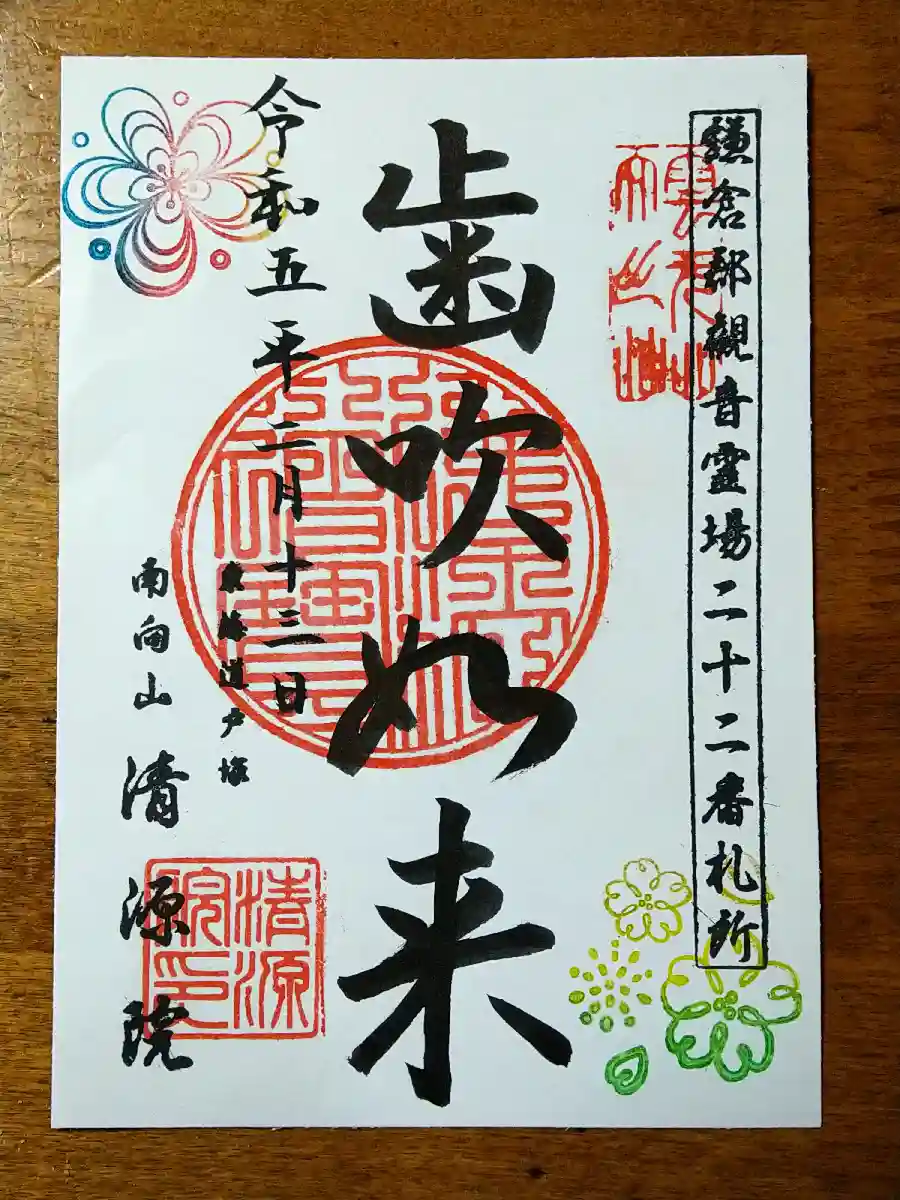 鎌倉郡観音霊場二十二番札所
歯吹如来
令和五年二月十三日
東海道戸塚
南向山 清源院
清源
院印